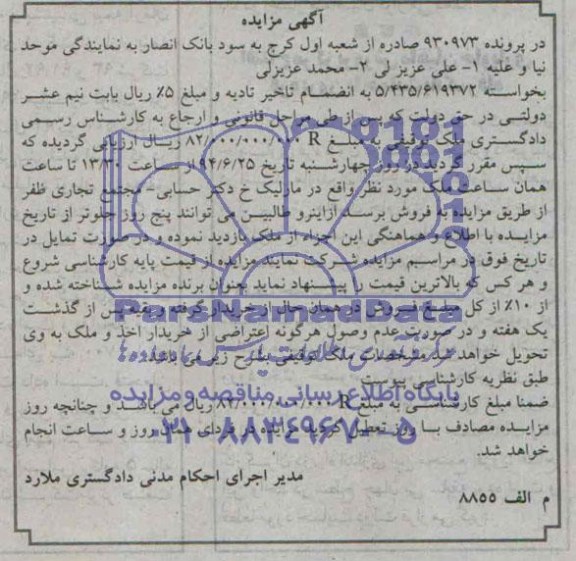 آگهی مزایده
در پرونده ۹۳۰۹۷۳ صادره از شعبه اول کرج به سود بانک انصار به نمایندگی موحد
نیا و علیه ۱- علی عزیز لی ۲- محمد عزیزلی
بخواسته ۵/۴۳۵/۶۱۹۳۷۲ به انضمام تاخیر تادیه و مبلغ ۵٪ ریال بابت نیم عشر
دولتی در حق دولت که پس از طی مراحل قانونی و ارجاع به کارشناس رسمی
دادگستری ملک توقیفی به مبلغ R ۸۲/۰۰۰/۰۰۰/۰۰۰ ریال ارزیابی گردیده که
سپس مقرر گردید در روز چهارشنبه تاریخ ۹۴/۶/۲۵ از ساعت ۱۳/۳۰ تا ساعت
همان ساعت ملک مورد نظر واقع در مارلیک خ دکتر حسابی- مجتمع تجاری ظفر
از طریق مزایده به فروش برسد ازاینرو طالبین می توانند پنج روز جلوتر از تاریخ
مزایده با اطلاع و هماهنگی این اجراء از ملک بازدید نموده و در صورت تمایل در
تاریخ فوق در مراسم مزایده شرکت نمایند مزایده از قیمت پایه کارشناسی شروع
و هر کس که بالاترین قیمت را پیشنهاد نماید بعنوان برنده مزایده شناخته شده و
از ۱۰٪ از کل مبلغ فروش در همان حال از خریدار گرفته و بقیه پس از گذشت
ParsNamadData
یک هفته و در صورت عدم وصول هرگونه اعتراضی از خریدار اخذ و ملک به وی
تحویل خواهد شد مشخصات ملک توقیفی بشرح زیر می باشد:
طبق نظریه کارشناسی پیوست
پایگاه اطلاع رسانی مناقصه و مزایده
ضمنا مبلغ کارشناسی به مبلغ R ۸۲/۰۰۰/۰۰۰/۰۰۰ ریال می باشد و چنانچه روز
۰۲۱-۸۸۳۴۹۶۷۰-۵
مزایده مصادف با روز تعطیل گردید مزایده در فردای همان روز و ساعت انجام
خواهد شد.
مدیر اجرای احکام مدنی دادگستری ملارد
م الف ۸۸۵۵